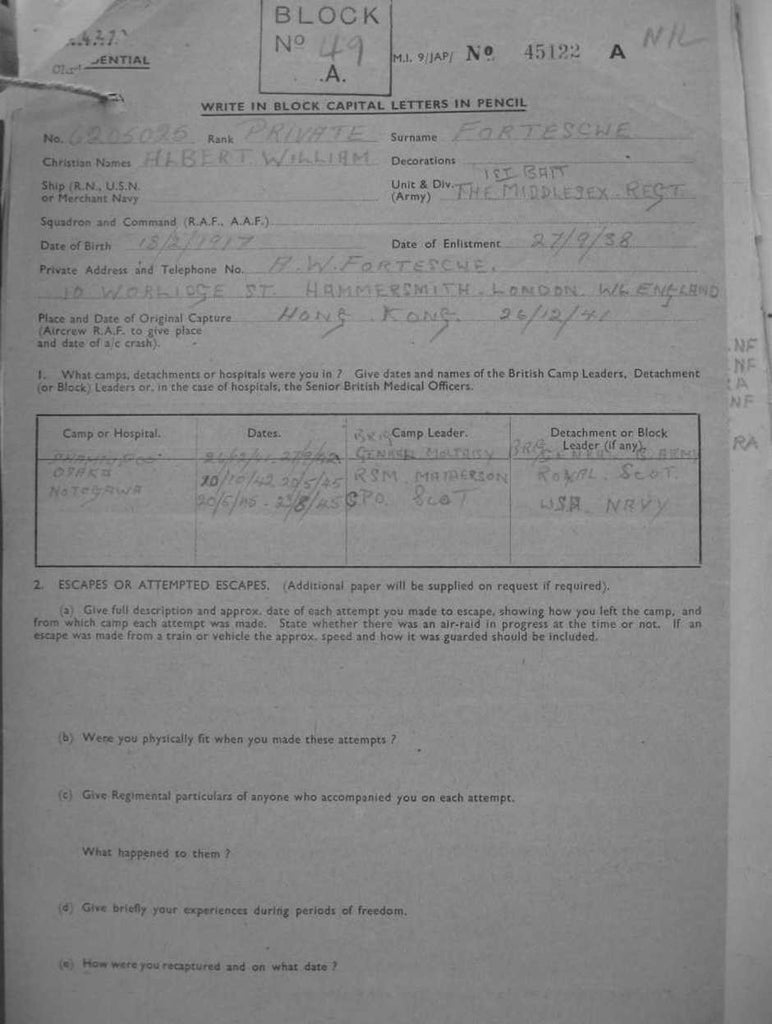 BLOCK
No 49
.A.
M.I. 9/JAP/ No 45122 A NIL
WRITE IN BLOCK CAPITAL LETTERS IN PENCIL
No. 6205025 Rank PRIVATE Surname FORTESCUE
Christian Names ALBERT WILLIAM Decorations
Ship (R.N., U.S.N. or Merchant Navy
Unit & Div. (Army) 1ST BATT THE MIDDLESEX. REGT.
Squadron and Command (R.A.F., A.A.F.)
Date of Birth 18/2/1917 Date of Enlistment 27/9/38
Private Address and Telephone No. A.W. FORTESCUE.
10 WORLIDGE ST. HAMMERSMITH. LONDON W6 ENGLAND
Place and Date of Original Capture HONG KONG. 26/12/41
(Aircrew R.A.F. to give place
and date of a/c crash).
NF
NF
RA
NF
RA
1. What camps, detachments or hospitals were you in ? Give dates and names of the British Camp Leaders, Detachment
(or Block) Leaders or, in the case of hospitals, the Senior British Medical Officers.
Camp or Hospital. Dates. Camp Leader. Detachment or Block
Leader (if any).
BRIG
OSAKA 10/10/42 20/5/45 RSM MATHERSON ROYAL. SCOT.
NOTOGAWA 20/5/45 - 23/8/45 CPO SCOT USA. NAVY
2. ESCAPES OR ATTEMPTED ESCAPES. (Additional paper will be supplied on request if required).
(a) Give full description and approx. date of each attempt you made to escape, showing how you left the camp, and
from which camp each attempt was made. State whether there was an air-raid in progress at the time or not. If an
escape was made from a train or vehicle the approx. speed and how it was guarded should be included.
(b) Were you physically fit when you made these attempts ?
(c) Give Regimental particulars of anyone who accompanied you on each attempt.
What happened to them ?
(d) Give briefly your experiences during periods of freedom.
(e) How were you recaptured and on what date ?